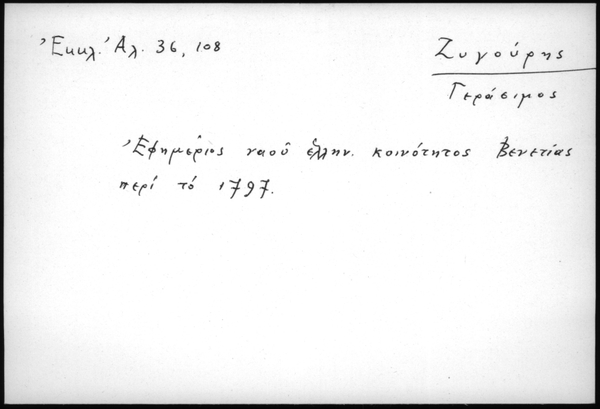 Ἐκκλ. Ἀλ. 36, 108
Ζυγούρης
Γεράσιμος
Ἐφημέριος ναοῦ ἑλλην. κοινότητος Βενετίας
περί τό 1797.